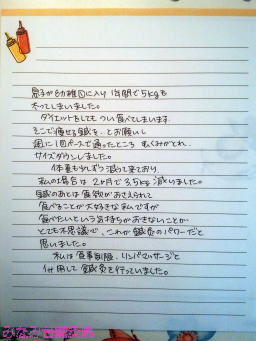 息子が幼稚園に入り1年間で5kgも
太ってしまいました。
ダイエットをしてもつい食べてしまいます。
そこで痩せる鍼を、とお願いし
週に1回ペースで通ったところ むくみがとれ、
サイズダウンしました。
体重も少しずつ減って来ており
私の場合は2ヶ月で3.5kg減りました。
鍼のあとは食欲がおさえられて
食べることが大好きな私ですが
食べたいという気持ちがおきないことが
とても不思議で、これが鍼灸のパワーだと
思いました。
私は食事制限、リンパマッサージと
併用して鍼灸を行っていました。